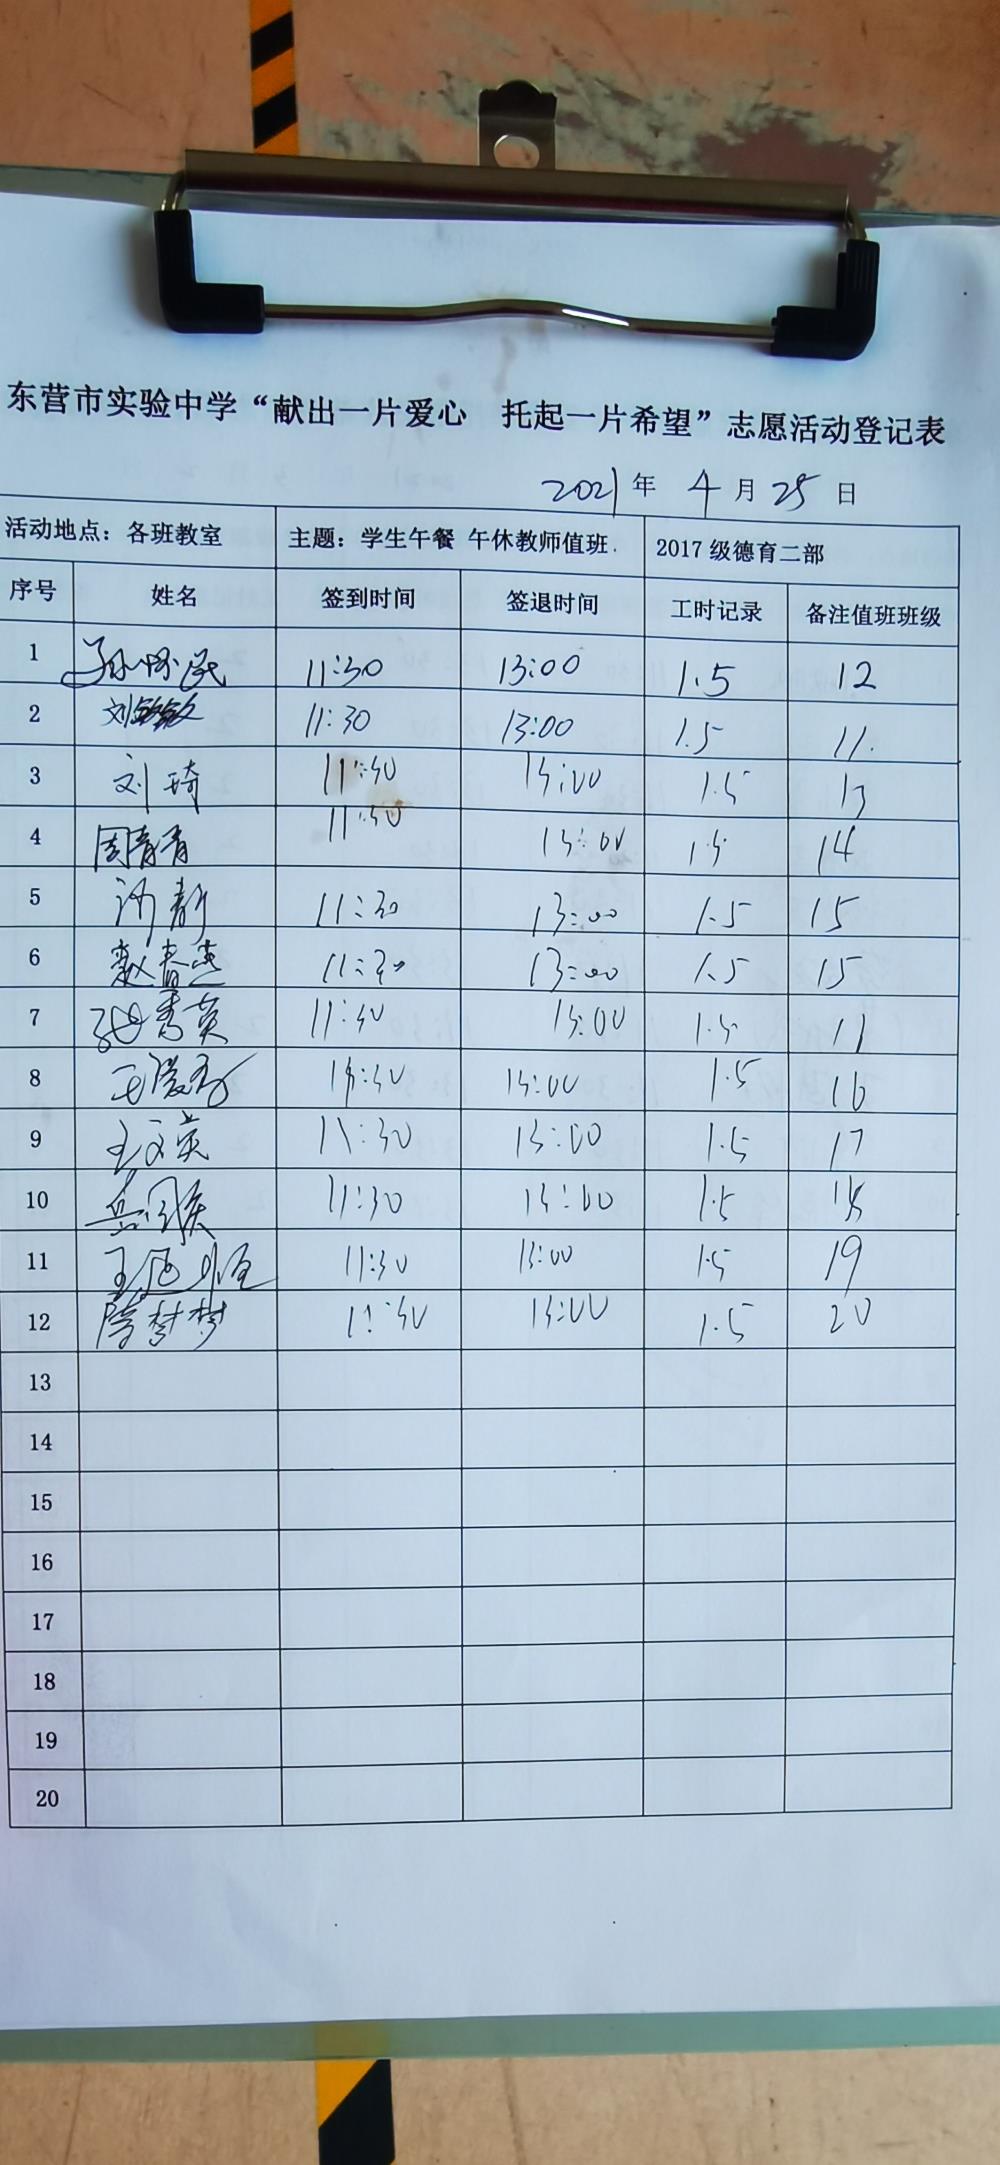 东营市实验中学“献出一片爱心 托起一片希望”志愿活动登记表
2021年 4月25日
活动地点：各班教室 主题：学生午餐 午休教师值班. 2017级德育二部
序号 姓名 签到时间 签退时间 工时记录 备注值班班级
1 11:30 13:00 1.5 12
2 刘敏敏 11:30 13:00 1.5 11.
3 刘琦 11:30 13:00 1.5 13
4 周青青 11:30 13:00 1.5 14
5 11:30 13:00 1.5 15
6 赵春燕 11:30 13:00 1.5 15
7 11:30 13:00 1.5 11
8 13:00 1.5 16
9 王文英 11:30 13:00 1.5 17
10 11:30 13:00 1.5 18
11 11:30 13:00 1.5 19
12 隋梦梦 11:30 13:00 1.5 20
13
14
15
16
17
18
19
20